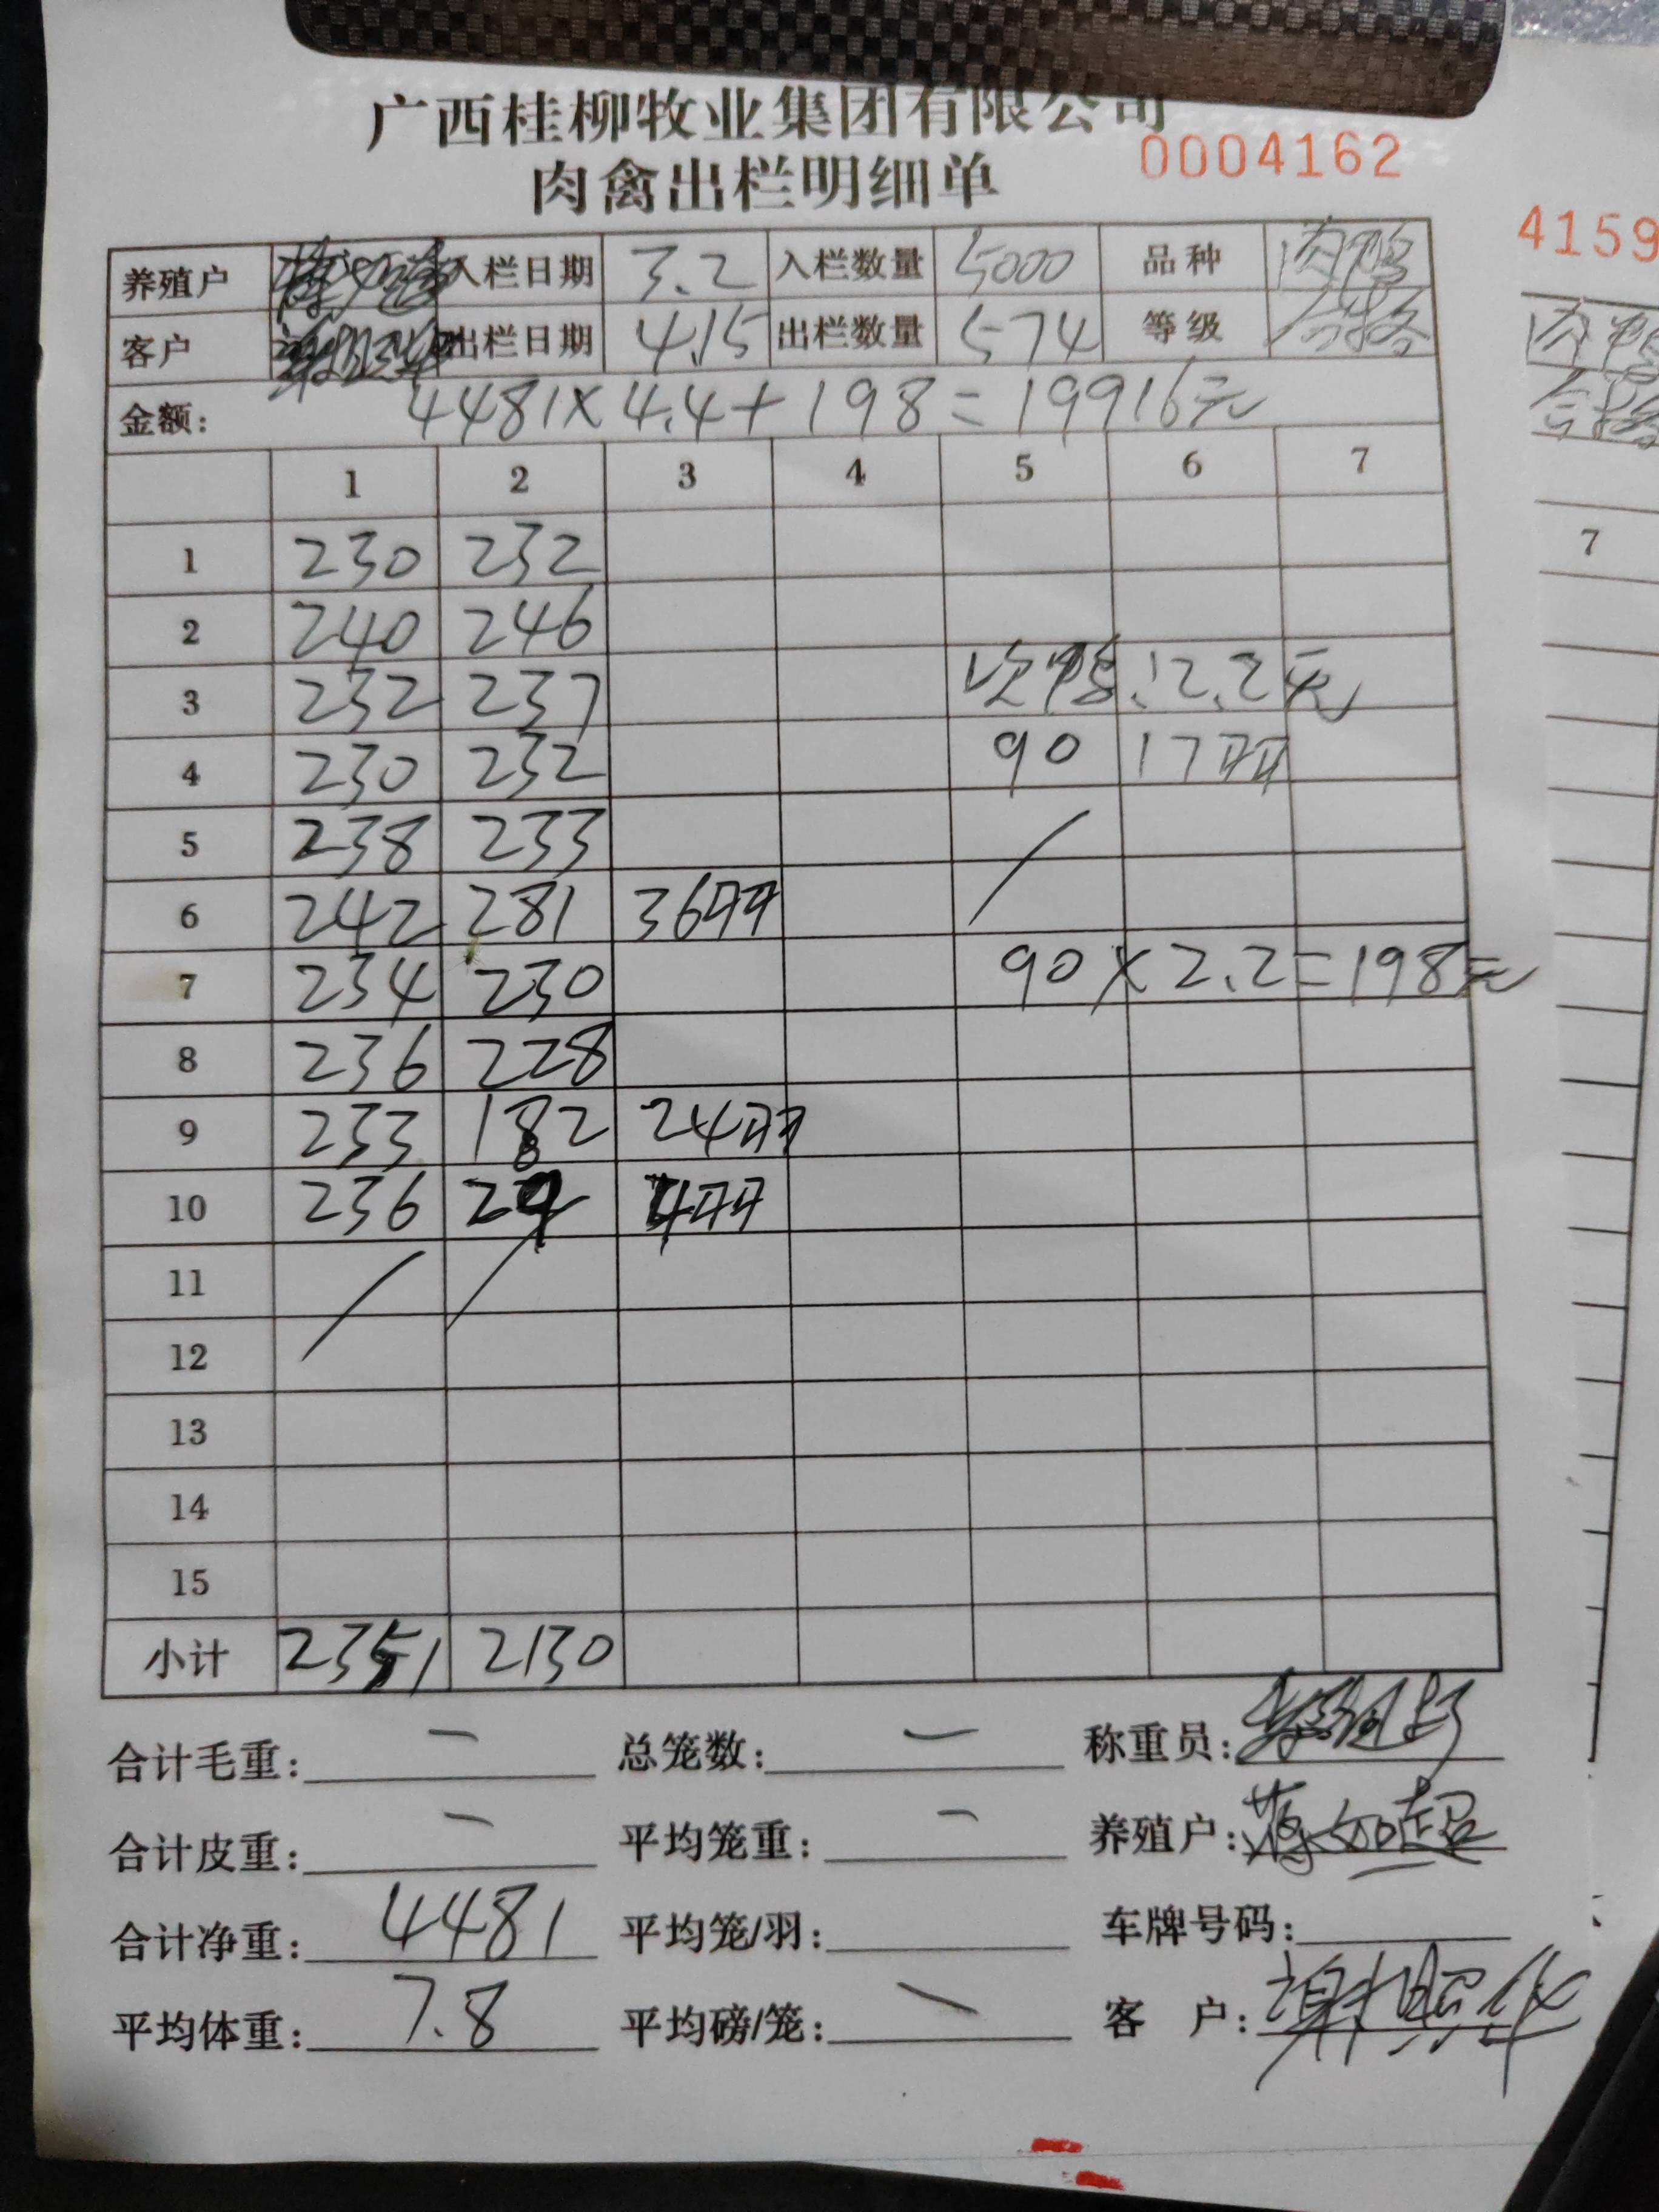 广西桂柳牧业集团有限公司
肉禽出栏明细单 0004162
4159
养殖户 入栏日期 3.2 入栏数量 5000 品种 肉鸭
客户 出栏日期 4.15 出栏数量 574 等级 合格
金额: 4481×4.4+198=19916元
1 2 3 4 5 6 7
1 230 232
2 240 246
3 232 237 次鸭:2.2元
4 230 232 90 17羽
5 238 233
6 242 281 36羽
7 234 230 90×2.2=198元
8 236 228
9 233 182 24羽
10 236 29 4羽
11
12
13
14
15
小计 2351 2130
合计毛重: 总笼数: 称重员:
合计皮重: 平均笼重: 养殖户:
合计净重: 4481 平均笼/羽: 车牌号码:
平均体重: 7.8 平均磅/笼: 客 户: 谢照华
7
肉鸭
合格